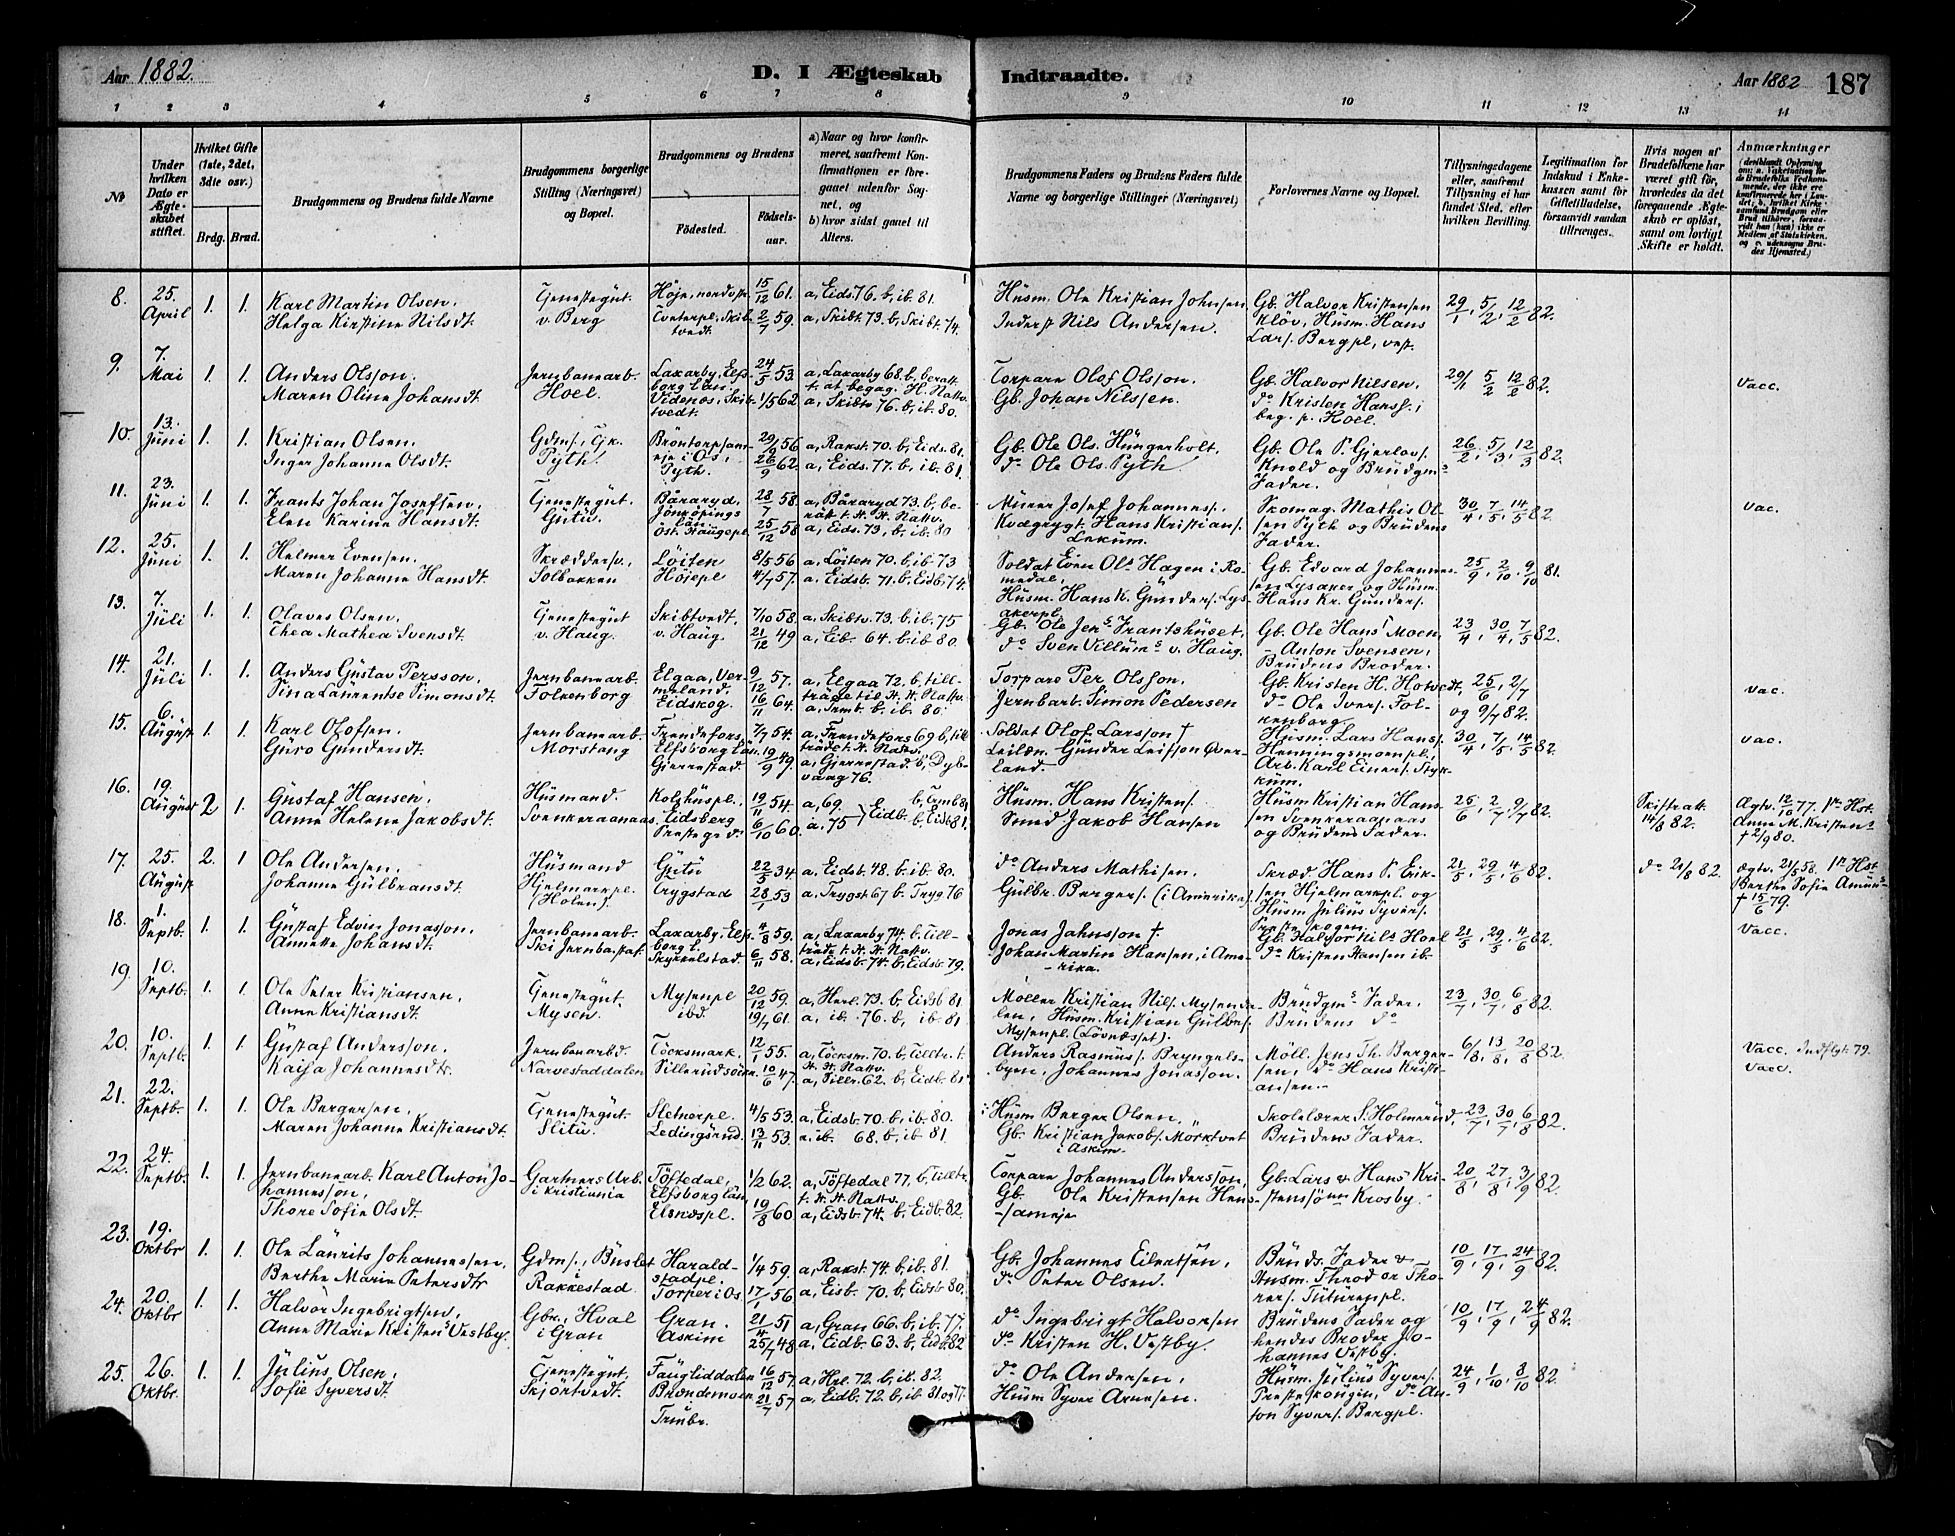 Aar 1882.
D. I Ægteskab Indtraadte.
Aar 1882 187
1 2 3 4 5 6 7 8 9 10 11 12 13 14
No
Under hvilken Dato er Ægteskabet stiftet.
Hvilket Gifte (1ste, 2det, 3die osv.)
Brdg. Brud.
Brudgommens og Brudens fulde Navne
Brudgommens borgerlige Stilling (Næringsvei) og Bopæl.
Brudgommens og Brudens
Fødested.
Fødselsaar.
a) Naar og hvor konfirmeret, saafremt Konfirmationen er foregaaet udenfor Sognet, og
b) hvor sidst gaaet til Alters.
Brudgommens Faders og Brudens Faders fulde Navne og borgerlige Stillinger (Næringsvei)
Forlovernes Navne og Bopæl.
Tillysningsdagene eller, saafremt Tillysning ei har fundet Sted, efter hvilken Bevilling.
Legitimation for Indskud i Enkekassen samt for Giftetilladelse, forsaavidt saadan tiltrænges.
Hvis nogen af Brudefolkene har været gift før, hvorledes da det foregaaende Ægteskab er opløst, samt om lovligt Skifte er holdt.
Anmærkninger
8. 25. April 1. 1. Karl Martin Olsen. Tjenestegut. Høje, nordvstr. 15/12 61. a, Eids. 76. b, ib. 81. Husm. Ole Kristian Johnsen Gb. Halvor Kristensen 29/1, 5/2, 12/2 82.
Helga Kirstine Nilsdt. v. Berg Tveterpl., Skibtvedt. 2/7 59. a, Skibt. 73. b, Skibt. 74. Inderst Nils Andersen. Kløv, Husm. Hans Lars. Bergpl, vest.
9. 7. Mai 1. 1. Anders Olsson. Jernbanearb. Laxarby, Elfsborg län. 24/5 53. a, Laxarby 68. b, beratt. t. at begag. H. Nattv. Torpare Olof Olsson. Gb. Halvor Nilsen. 29/1 5/2 12/2 82. Vacc.
Maren Oline Johansdt. Hoel. Videnæs, Skibtvedt. 1/5 62 a, Skibtv 76. b, ib. 80. Gb. Johan Nilssen. do Kristen Hanss. i beg. p. Hoel.
10. 13. Juni 1. 1. Kristian Olsen. Gdms., Gk. Bröntorpsameje i Os, 29/9 56 a, Rakst. 70. b, Eids. 81. Gb. Ole Ols. Hungerholt. Gb. Ole P. Gjerlovs. 26/2, 5/3, 12/3 82.
Inger Johanne Olsdt. Pyth. Pyth. 26/9 62. a, Eids. 77. b, ib. 81. do Ole Ols. Pyth Knold og Brudgms Fader.
11. 23. Juni 1. 1. Frants Johan Josefsen. Tjenestegut. Båraryd, Jönköpings län 28/7 58. a, Båraryd 73. b, berätt t. H. H. Nattv. Murer Josef Johanness. Skomag. Mathis Olsen Pyth og Brudens Fader. 30/4, 7/5, 14/5 82. vac.
Elen Karine Hansdt. Gutu. Öst. Haugepl. 25/12 58 a, Eids. 73. b, ib. 80 Kvægrygt. Hans Kristians. Lekum.
12. 25. Juni 1. 1. Helmer Evensen. Skrædders., Löiten 8/5 56 a, Löiten 70. b, ib. 73 Soldat Even Ols Hagen i Romedal, Gb. Edvard Johannessen Lysaker og Husm. 25/9, 2/10, 9/10 81.
Maren Johanne Hansdt. Solbakken Höiepl 4/7 57. a. Eidsb. 71. b. Eidb. 74. Husm. Hans K. Gunders. Lysakerpl. Hans Kr. Gunders.
13. 7. Juli 1. 1. Olaves Olsen. Tjenestegut Skibtvedt. 7/10 58. a. Skibtv. 73. b. ib. 75 Gb. Ole Jens Frantshuset. Gb. Ole Hans' Moen, 23/4, 30/4, 7/5 82.
Thea Mathea Svensdt. v. Haug. v. Haug. 21/12 49 a, Eib. 64. b. ib 80. do Sven Villums v. Haug. - Anton Svensen, Brudens Broder.
14. 21. Juli 1. 1. Anders Gustav Persson. Jernbanearb. Elgaa, Vermeland. 9/12 57. a, Elgaa 72. b, tillträde til H. H. Nattv. Torpare Per Olsson. Gb. Kristen H. Hotvedt, 25/6, 2/7 og 9/7 82. vac.
Tina Laurentse Simonsdt. Folkenborg Eidskog. 16/11 64. a, Trmb. b. ib. 80. Jernbarb. Simon Pedersen do Ole Ivers. Folkenborg.
15. 6. August 1. 1. Karl Olofsen. Jernbanearb. Frendefors, Elfsborg Län. 7/7 54. a, Frendefors 69 b, till träde t. H. Nattv. Soldat Olof Larsson † Husm. Lars Hans. Henningsmoenpl. 30/4, 7/5, 14/5 82. vac.
Guro Gundersdt. Morstang Gjerrestad. 19/9 49. a, Gjerrestad. b, Dybvaag 76. Leilän. Gunder Leifson Överland. Arb. Karl Einers. Stykkum.
16. 19. August 2 1. Gustaf Hansen. Husmand. Kolshuspl., 19/11 54. a, 69. b, Trmb 81 Husm. Hans Kristens. Husm. Kristian Hansen Svenkeraanaas 25/6, 2/7, 9/7 82. Skifteatt. 14/8 82. Ægtv. 12/10 77. 1ste Hst.
Anne Helene Jakobsdt. Svenkeraanaas. Eidsberg Prestegd. 6/10 60. a. 75 Eidb. b. Eidb 81. Smed Jakob Hansen og Brudens Fader. Anne M. Kristens † 2/9 80.
17. 25. August 2. 1 Ole Andersen, Husmand Gutu 22/5 34 a. Eidsb. 48. b. ib. 80. do Anders Mathisen. Skræd. Hans P. Eriksen Hjelmarkpl. og 21/5, 29/5, 4/6 82. do 21/8 82. Ægtv. 21/5 58. 1st Hst.
Johanne Gulbransdt. Hjelmarkpl. (Holen). Trygstad 28/1 53 a, Trygst 67 b. Tryg 76 Gulbr. Bergers. (i Amerika). Husm. Julius Syvers. Presteskogen. Berthe Sofie Amuns † 15/6 79.
18. 1. Septb. 1. 1. Gustaf Edvin Jonasson. Jernbanearb. Laxarby, Elfsborg l. 4/8 59. a, Laxarby 74. b. Tillträde t. H. H. Nattv. Jonas Jahnsson †. Gb. Halvor Nils. Hoel 21/5, 29/5, 4/6 82. Vacc.
Annette Johansdt. Ski Jernba.staf. Skykkelstad. 6/11 58. a, Eidsb. 74. b, Eidsb. 79. Johan Martin Hansen, i Amerika. do Kristen Hansen ib.
19. 10. Septb. 1. 1. Ole Peter Kristiansen. Tjenestegut. Mysenpl 20/12 59. a, Herl. 73. b, Eidsb 81. Möller Kristian Nils. Mysendalen, Brudgms Fader. 23/7, 30/7, 6/8 82.
Anne Kristiansdt. Mysen. ibd. 19/7 61. a, ib. 76. b, ib. 81. Husm. Kristian Gulbs. Mysenpl. (Lövnæsset). Brudens do
20. 10. Septb. 1. 1. Gustaf Andersson. Jernbanearbd. Töcksmark. 12/1 55. a, Töcksm. 70. b, Tilldr. t. H. H. Nattv. Anders Rasmus. Bryngelsbyen, Möll. Jens Th. Bergersen, 6/8, 13/8, 20/8 82. Vacc. Indflyt 79.
Kaija Johannesdtr. Narvestaddalen Sillerudsoien 10/6 47. a, Sillr. 62. b, Eidb. 81. Johannes Jonasson. do Hans Kristiansen. Vacc.
21. 22. Septb. 1. 1. Ole Bergersen. Tjenestegut. Sletnerpl. 4/5 53. a, Eidsb. 70. b, ib. 80. Husm Berger Olsen. Skolelærer S. Holmerud, 23/7, 30/7, 6/8 82.
Maren Johanne Kristiansdt. Slitu. Ledingsrud. 13/11 53. a. ib. 68. b, ib 81. Gb. Kristian Jakobs. Morktvet i Askim. Brudens Fader.
22. 24. Septb. 1. 1. Jernbanearb. Karl Anton Johannesson, Gartners Arb. i Kristiania Töftedal, Elfsborg län 1/2 62. a, Töftedal 77. b, Tilltr. t. H. H. Nattv. Torpare Johannes Andersson, Gb. Lars & Hans Kristenssønn Krosby. 20/8, 27/8, 3/9 82.
Thore Sofie Olsdt. Elsnæspl. 19/8 60 a, Eidsb. 74. b. Eidb. 82. Gb. Ole Kristensen Hens-sameje
23. 19. Oktbr 1. 1. Ole Laurits Johannessen, Gdms., Buslet Haraldstadpl. 1/4 59. a, Rakst. 74. b, ib. 81. Gb. Johannes Eilertsen, Bruds. Fader & 10/9, 17/9, 24/9 82.
Berthe Marie Petersdtr Rakkestad Torper i Os 17/1 56 a, Eisb. 70. b, Eidsb 80. do Peter Olsen. Husm. Theodor Thorers. Tuturenpl.
24. 20. Oktbr 1. 1. Halvor Ingebrigtsen, Gbr., Hval Gran. 21/4 51 a, Gran 66. b, ib. 77. do Ingebrigt Halvorsen Brudens Fader og 10/9, 17/9, 24/9 82.
Anne Marie Kristens Vestby. i Gran Askim 25/7 48 a, Eidb. 63. b, Eidb. 82 do Kristen H. Vestby. hendes Broder Johannes Vestby.
25. 26. Oktbr. 1. 1. Julius Olsen, Tjenestegut, Faugliddalen 16/12 57. a, Herl. 72. b, ib. 82. do Ole Andersen, Husm. Julius Syvers. 24/9, 1/10, 8/10 82.
Sofie Syversdt. Skjörtvedt. Brændemoen Trmbr. 21/7 57 a, Eidb. 72. b, ib 81 og 77. Husm Syver Arnesen. Presteskougen, do Anson Syvers. Bergpl.